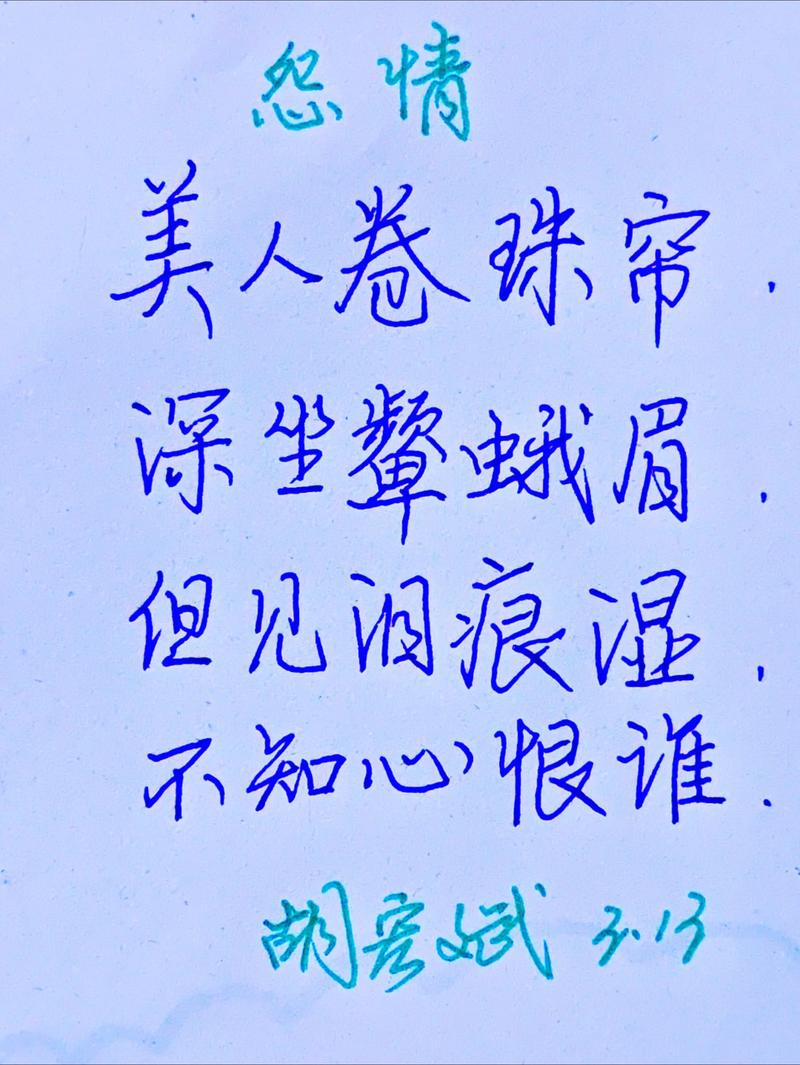 怨情
美人卷珠帘.
深坐颦蛾眉.
但见泪痕湿.
不知心恨谁.
胡宏斌 3.13